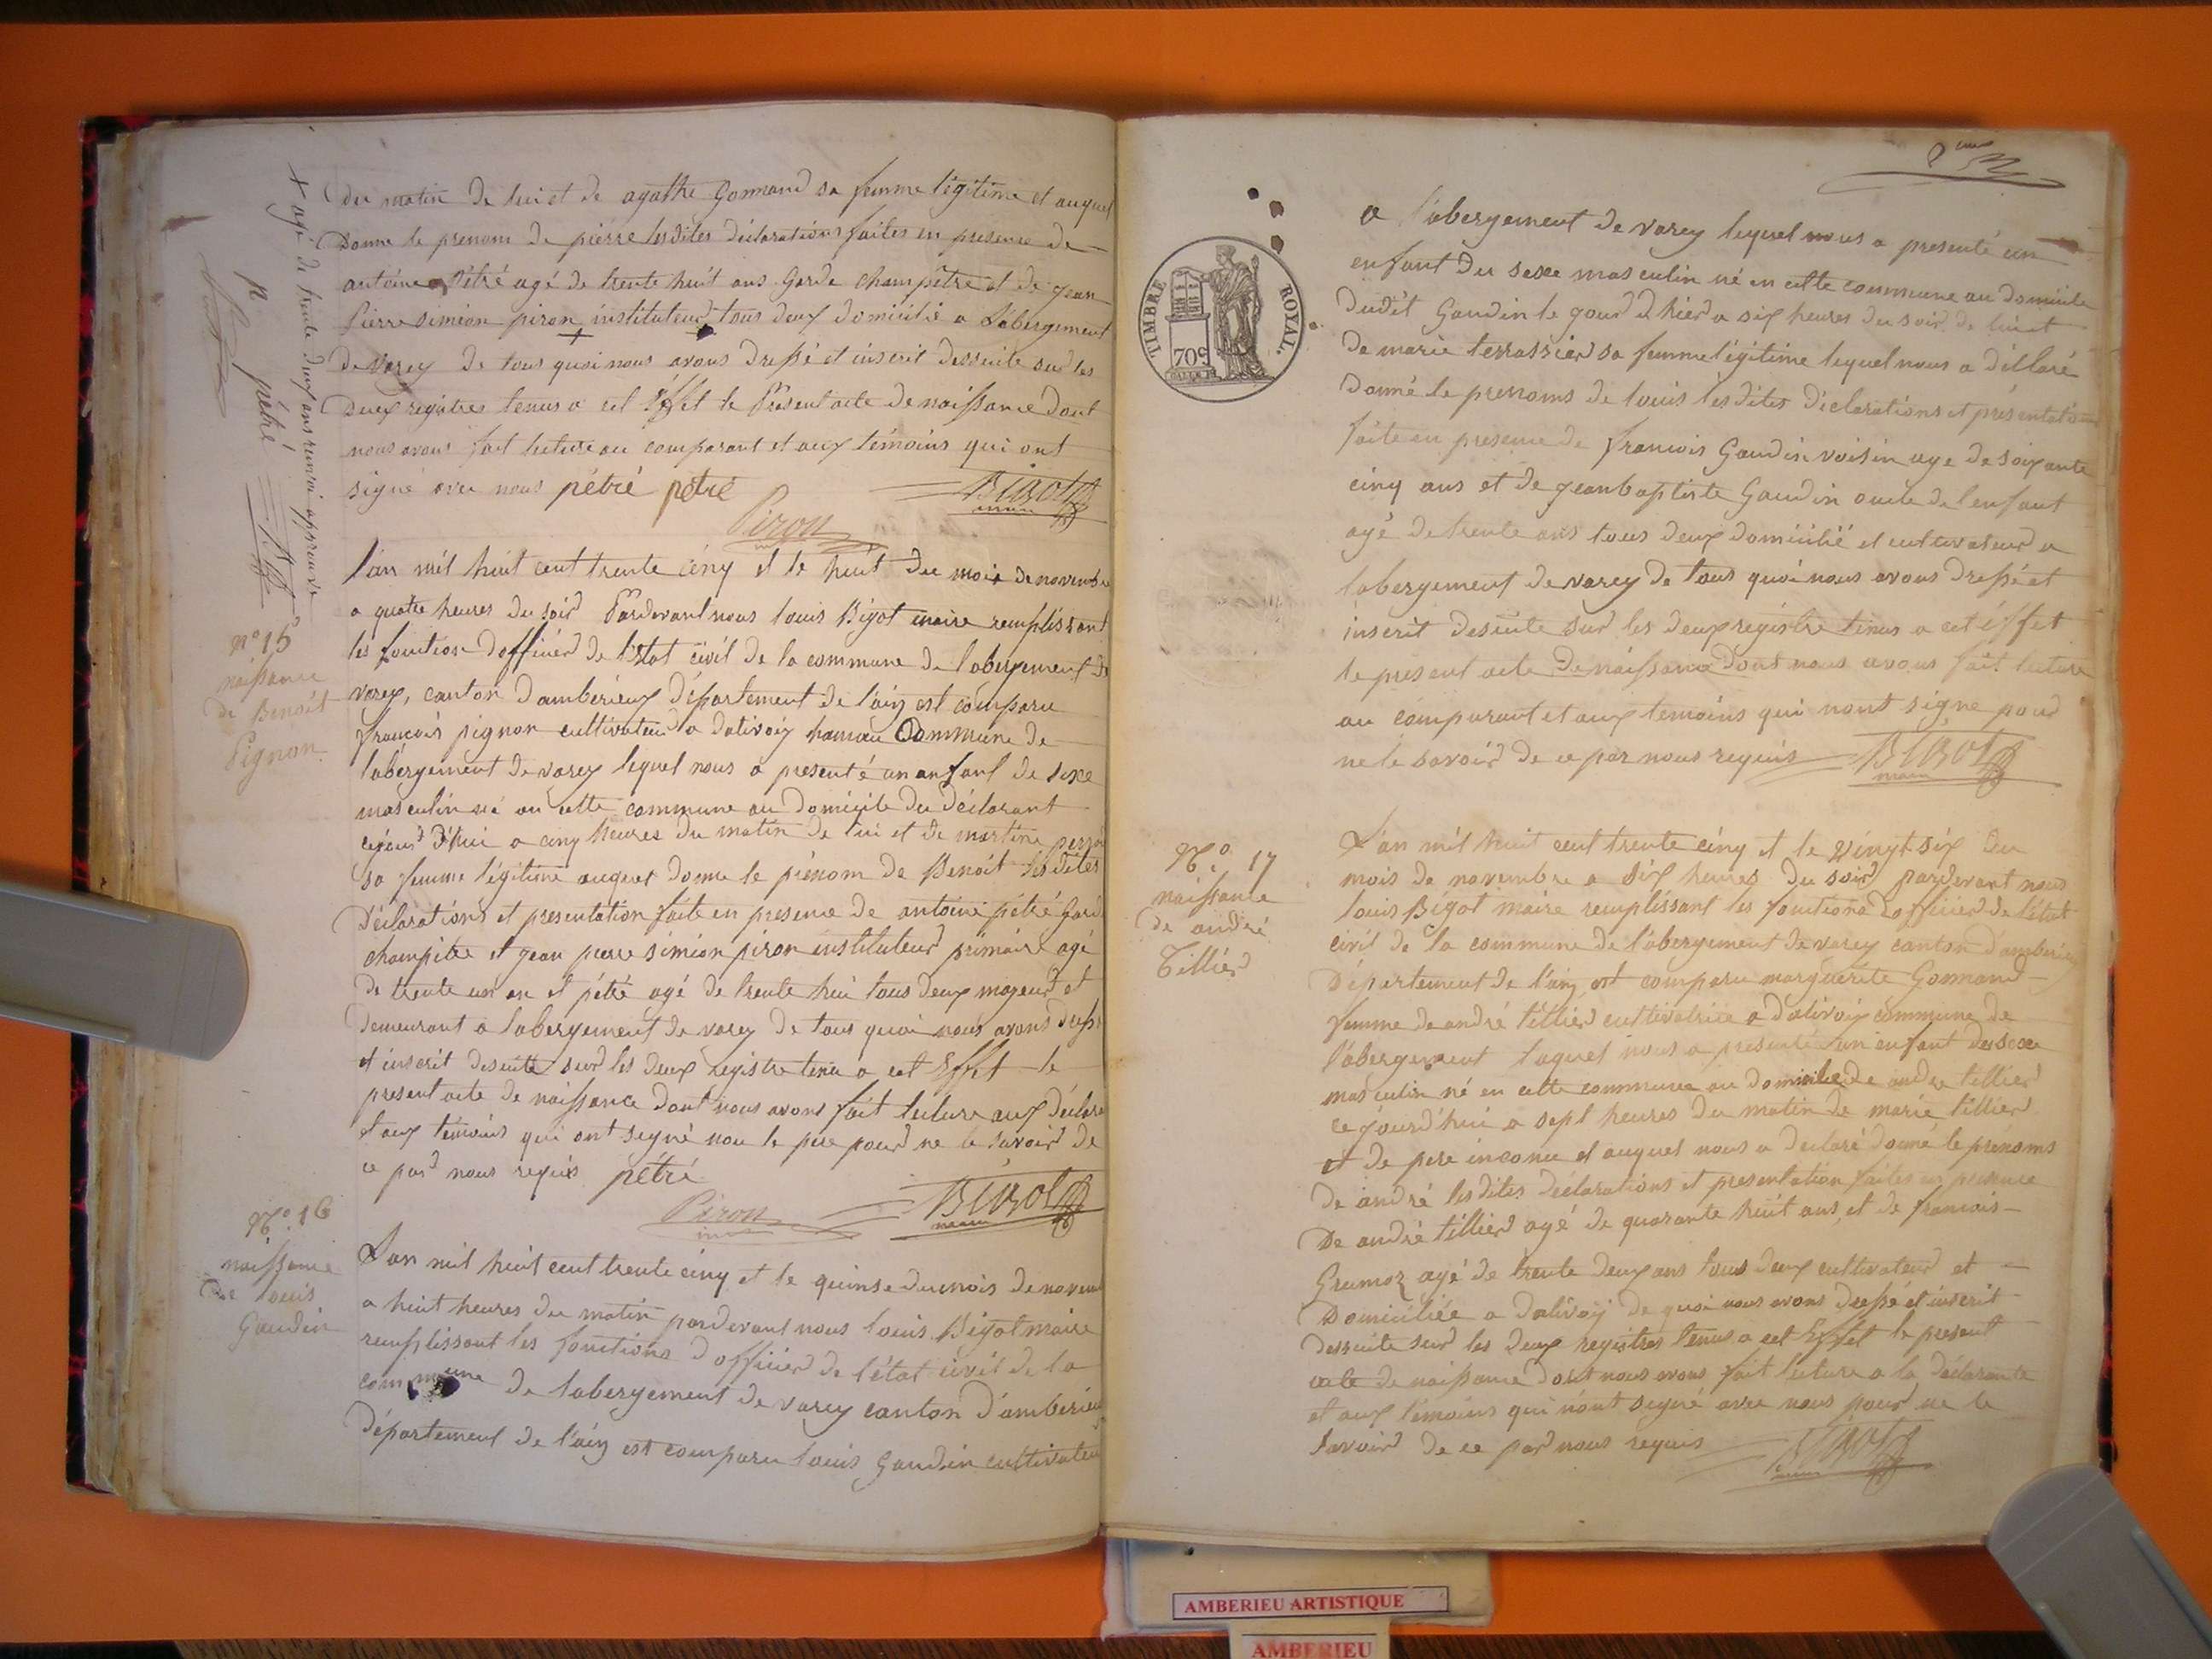 du matin de lui et de agathe Gonnand sa femme légitime et auquel
donne le prenom de pierre lesdites déclarations faites en presence de
antoine pétré agé de trente huit ans Garde champétre et de jean
Pierre siméon piron instituteur tous deux domicilié a Labergement
de varey de tous quoi nous avons dressé et inscrit dessuite sur les
deux registres tenus a cet Effet le Présent acte de naissance dont
nous avons fait lecture au comparant et aux témoins qui ont
signé avec nous pétré pétré
BIGOT
maire
Piron
+ agé de trente deux ans renvoi approuvé
pétré
n° 15
naissance
de Benoit
Pignon
l'an mil huit cent trente cinq et le huit du mois de novembre
a quatre heures du soir Pardevant nous louis Bigot maire remplissant
les fonction dofficier de l'Etat civil de la commune de labergement de
varey, canton damberieux département de l'ain est comparu
francois pignon cultivateur a dalivoiy hameau Commune de
labergement de varey lequel nous a presenté un anfant de sexe
masculin né an cette commune au domicile du déclarant
cejourd'hui a cinq heures du matin de lui et de martine
sa femme légitime auquel donne le prénom de Benoit lesdites
déclarations et presentation faite en presence de antoine pétré Garde
champétre et jean pierre siméon piron instituteur primaire agé
de trente un an et pétré agé de trente hui tous deux majeur et
demeurant a labergement de varey de tous quoi nous avons dressé
et inscrit desuite sur les deux registre tenu a cet Effet le
present acte de naissance dont nous avons fait lecture aux déclara
et aux témoins qui ont signé non le pere pour ne le savoir de
ce par nous requis pétré
Piron
BIGOT
maire
N° 16
naissance
de louis
Gaudin
L'an mil huit cent trente cinq et le quinse du mois de novem
a huit heures du matin pardevant nous louis Bigot maire
remplissant les fonctions d'officier de l'état civil de la
commune de labergement de varey canton d'amberieu
département de l'ain est comparu louis Gaudin cultivateur
TIMBRE ROYAL.
70c
a l'abergement de varey lequel nous a presenté un
enfant du sexe masculin né en cette commune au domicile
dudit Gaudin le jour d'hier a six heures du soir de lui et
de marie terrassier sa femme légitime lequel nous a déllaré
donné le prenoms de louis lesdites déclarations et présentation
faite en presence de francois Gaudin voisin age de soixante
cinq ans et de jean baptiste Gaudin oncle de l'enfant
agé de trente ans tous deux domicilié et cultivateur a
labergement de varey de tous quoi nous avons dressé et
inscrit desuite sur les deux régistre tenus a cet éffet
le present acte de naissance dont nous avons fait lecture
au comparant et aux temoins qui nont signe pour
ne le savoir de ce par nous requis
BIGOT
maire
N° 17
naissante
de andré
Tillier
L'an mil huit cent trente cinq et le vingt six du
mois de novembre a six heures du soir pardevant nous
louis Bigot maire remplissant les fonctions dofficier de l'état
civil de la commune de l'abergement de varey canton d'amberieu
département de l'ain est comparu marguerite Gonnand
femme de andré tillier cultivatrice a dalivoiy commune de
l'abergement laquel nous a presenté un enfant du sexe
masculin né en cette commune au domicile de andre tillier
ce jourd'hui a sept heures du matin de marie tillier
et de pere inconu et auquel nous a declaré donné le prénoms
de andré lesdites déclarations et presentation faites en presence
de andré tillier agé de quarante huit ans, et de francois
Grumoz agé de trente deux ans tous deux cultivateur et
domiciliée a dalivoiy de quoi nous avons dressé et inscrit
dessuite sur les deux registres tenus a cet Effet le present
acte de naissance dont nous avons fait lecture a la déclarante
et aux témoins qui n'ont signé avec nous pour ne le
savoir de ce par nous requis
BIGOT
maire
AMBERIEU ARTISTIQUE
AMBERIEU